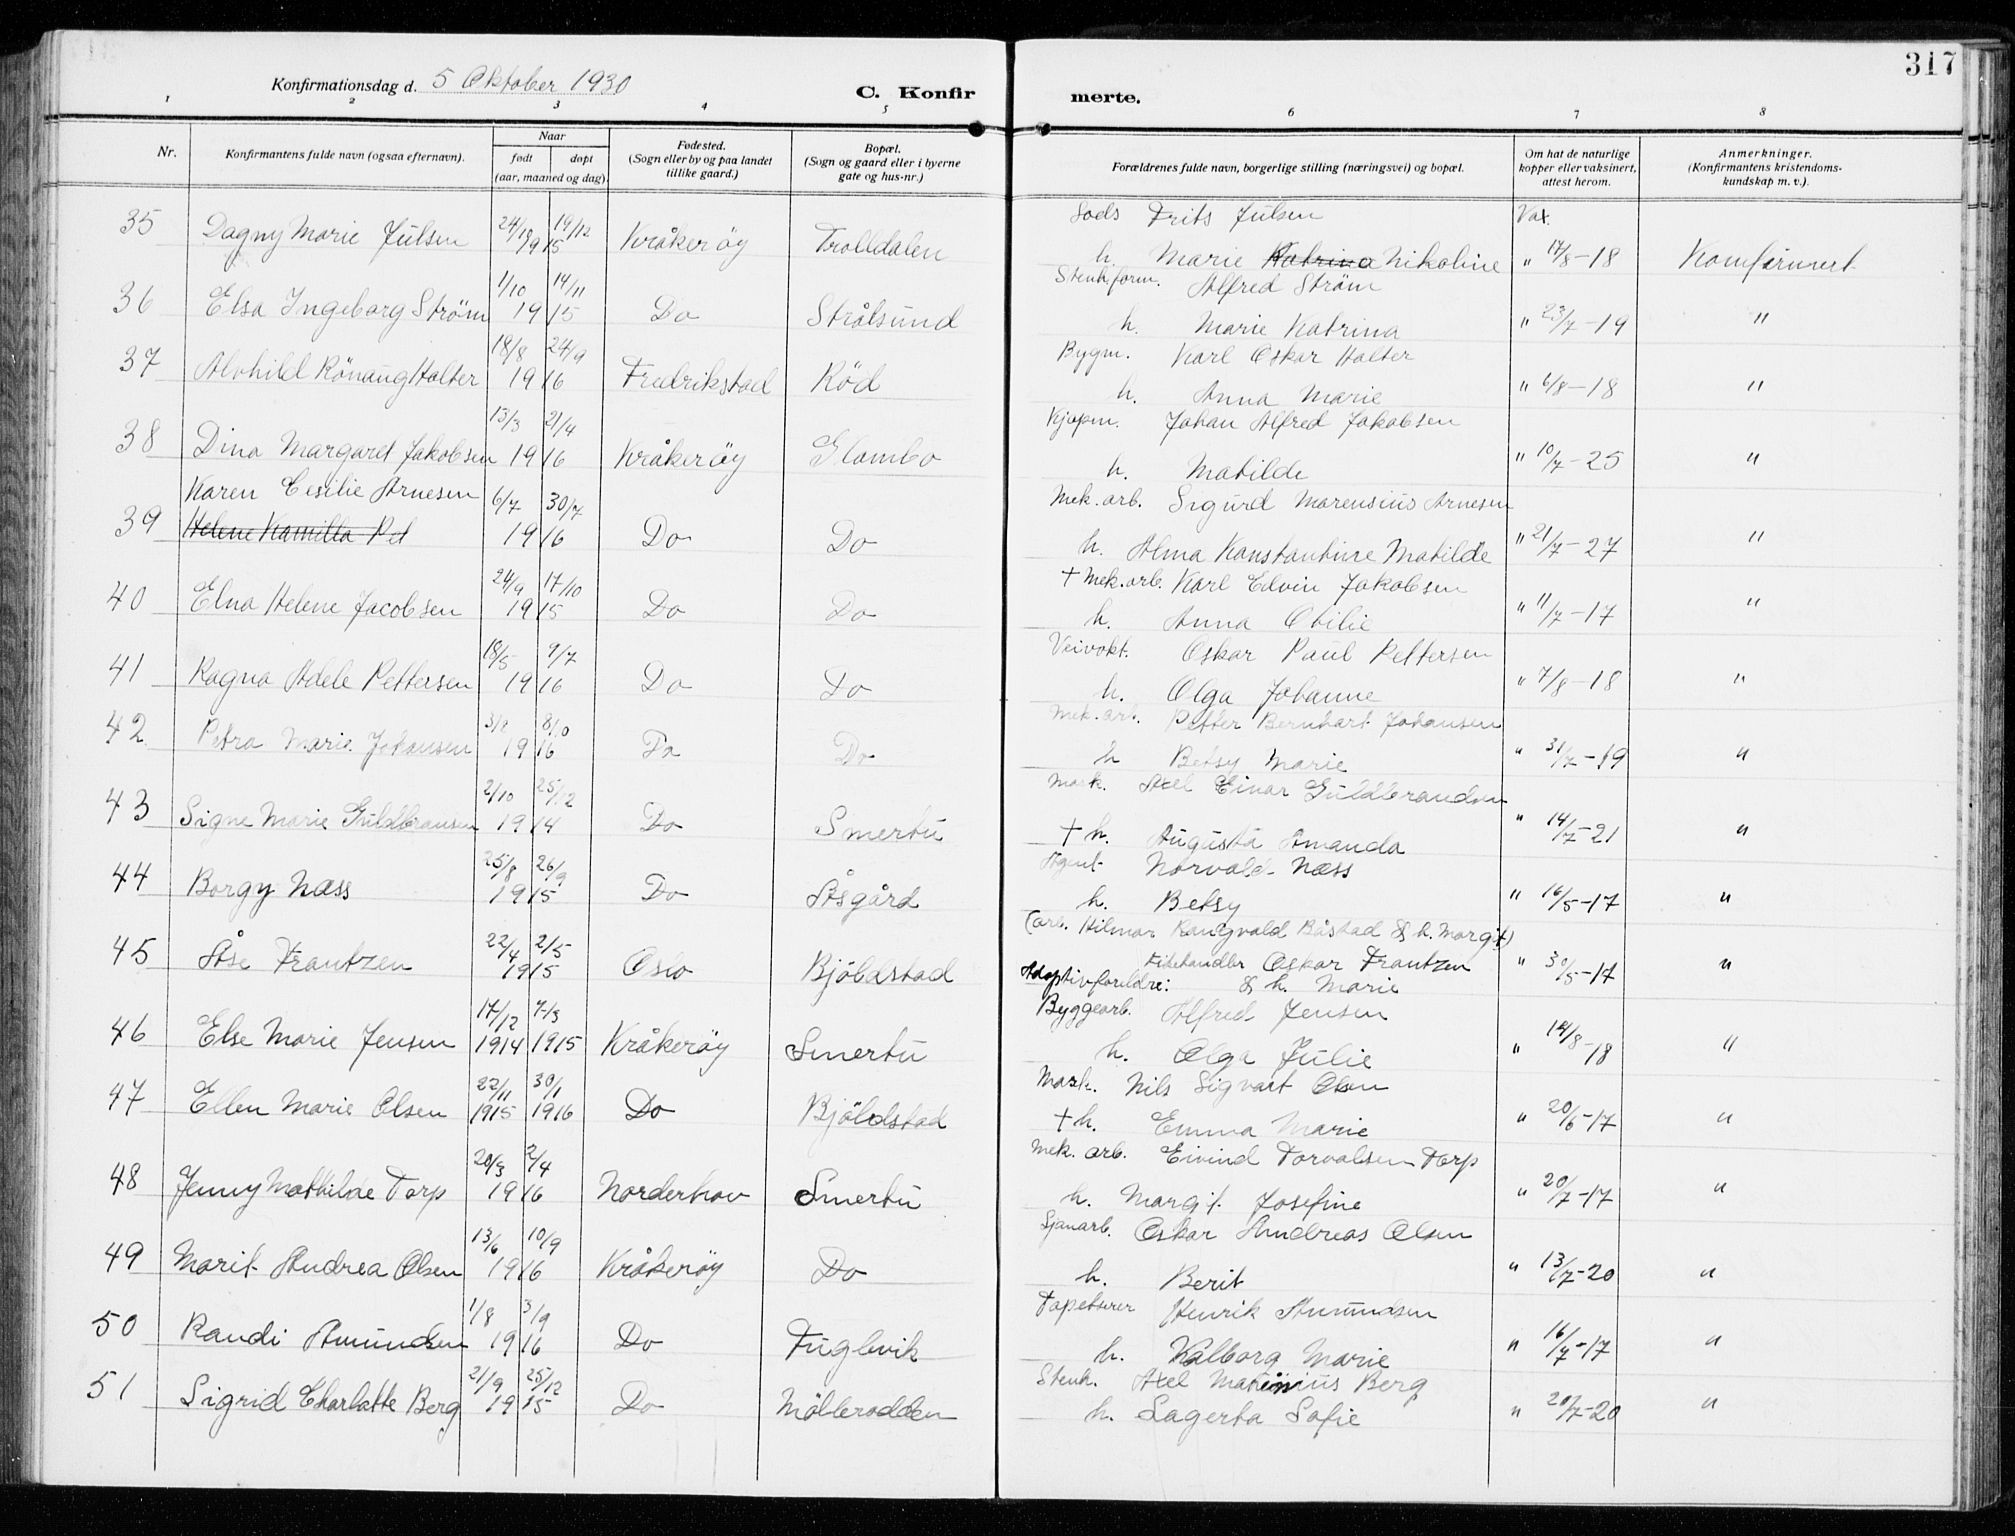 317
Konfirmationsdag d. 5 Oktober 1930
C. Konfir merte.
1 2 3 4 5 6 7 8
Nr.
Konfirmantens fulde navn (ogsaa efternavn).
Naar
født døpt
(aar, maaned og dag).
Fødested.
(Sogn eller by og paa landet
tillike gaard.)
Bopæl.
(Sogn og gaard eller i byerne
gate og hus-nr.)
Forældrenes fulde navn, borgerlige stilling (næringsvei) og bopæl.
Om hat de naturlige
kopper eller vaksinert,
attest herom.
Anmerkninger.
(Konfirmantens kristendoms-
kundskap m. v.).
24/10 19/12 Frits Julsen Vax.
35 Dagny Marie Julsen 1915 Kråkerøy Trolldalen h. Marie Katrina Nikoline " 17/8-18 Konfirmert
1/10 14/11 Stenh.form. Alfred Strøm
36 Elsa Ingeborg Strøm 1915 Do Strålsund h. Marie Katrina " 23/7-19 "
18/8 24/9 Bygm. Karl Oskar Holter
37 Alvhild Rönaug Holter 1916 Fredrikstad Rød h. Anna Marie " 6/8-18 "
13/3 21/4 Kjøpm. Johan Alfred Jakobsen
38 Dina Margaret Jakobsen 1916 Kråkerøy Glombo h. Matilde " 10/7-25 "
Karen Cesilie Arnesen 6/7 30/7 Mek. arb. Sigurd Marensius Arnesen
39 Helene Kamilla Pet 1916 Do Do h. Alma Konstantine Matilde " 21/7-27 "
24/9 17/10 † Mek. arb. Karl Edvin Jakobsen
40 Elna Helene Jacobsen 1915 Do Do h. Anna Otilie " 11/7-17 "
18/5 9/7 Veivokt. Oskar Paul Pettersen
41 Ragna Adele Pettersen 1916 Do Do h. Olga Johanne " 7/8-18 "
8/10 Mek. arb. Petter Bernhart Johansen
42 Petra Marie Johansen 1916 Do Do h Betsy Marie " 31/7-19 "
2/10 25/12 Mask. Axel Einar Guldbrandsen
43 Signe Marie Guldbransen 1914 Do Smertu † h. Augusta Amanda " 14/7-21 "
25/8 26/9 Agent Norvald Næss
44 Borgy Næss 1915 Do Åsgård h. Betsy " 16/5-17 "
(arb. Hilmar Rangvald Båstad & h. Margit)
22/4 2/5 Fiskehandler Oskar Frantzen
45 Åse Frantzen 1915 Oslo Bjölstad Adoptivforeldre: & h. Marie " 30/5-17 "
17/12 7/3 Byggearb. Alfred Jensen
46 Else Marie Jensen 1914 1915 Kråkerøy Smertu h. Olga Julie " 14/8-18 "
22/11 30/1 Mask. Nils Sigvart Olsen
47 Ellen Marie Olsen 1915 1916 Do Bjöldstad † h. Emma Marie " 20/6-17 "
20/3 2/4 Mek. arb. Eivind Torvaldsen Torp
48 Jenny Mathilde Torp 1916 Norderhov Smertu h. Margit Josefine " 20/7-17 "
13/6 10/9 Sjauarb. Oskar Andreas Olsen
49 Marit Andrea Olsen 1916 Kråkerøy Do h. Berit " 13/7-20 "
1/8 3/9 Tapetserer Henrik Amundsen
50 Randi Amundsen 1916 Do Fuglevik h. Valborg Marie " 16/7-17 "
21/9 25/12 Stenh. Axel Marinius Berg
51 Sigrid Charlotte Berg 1915 Do Möllerodden h. Lagerta Sofie " 20/7-20 "